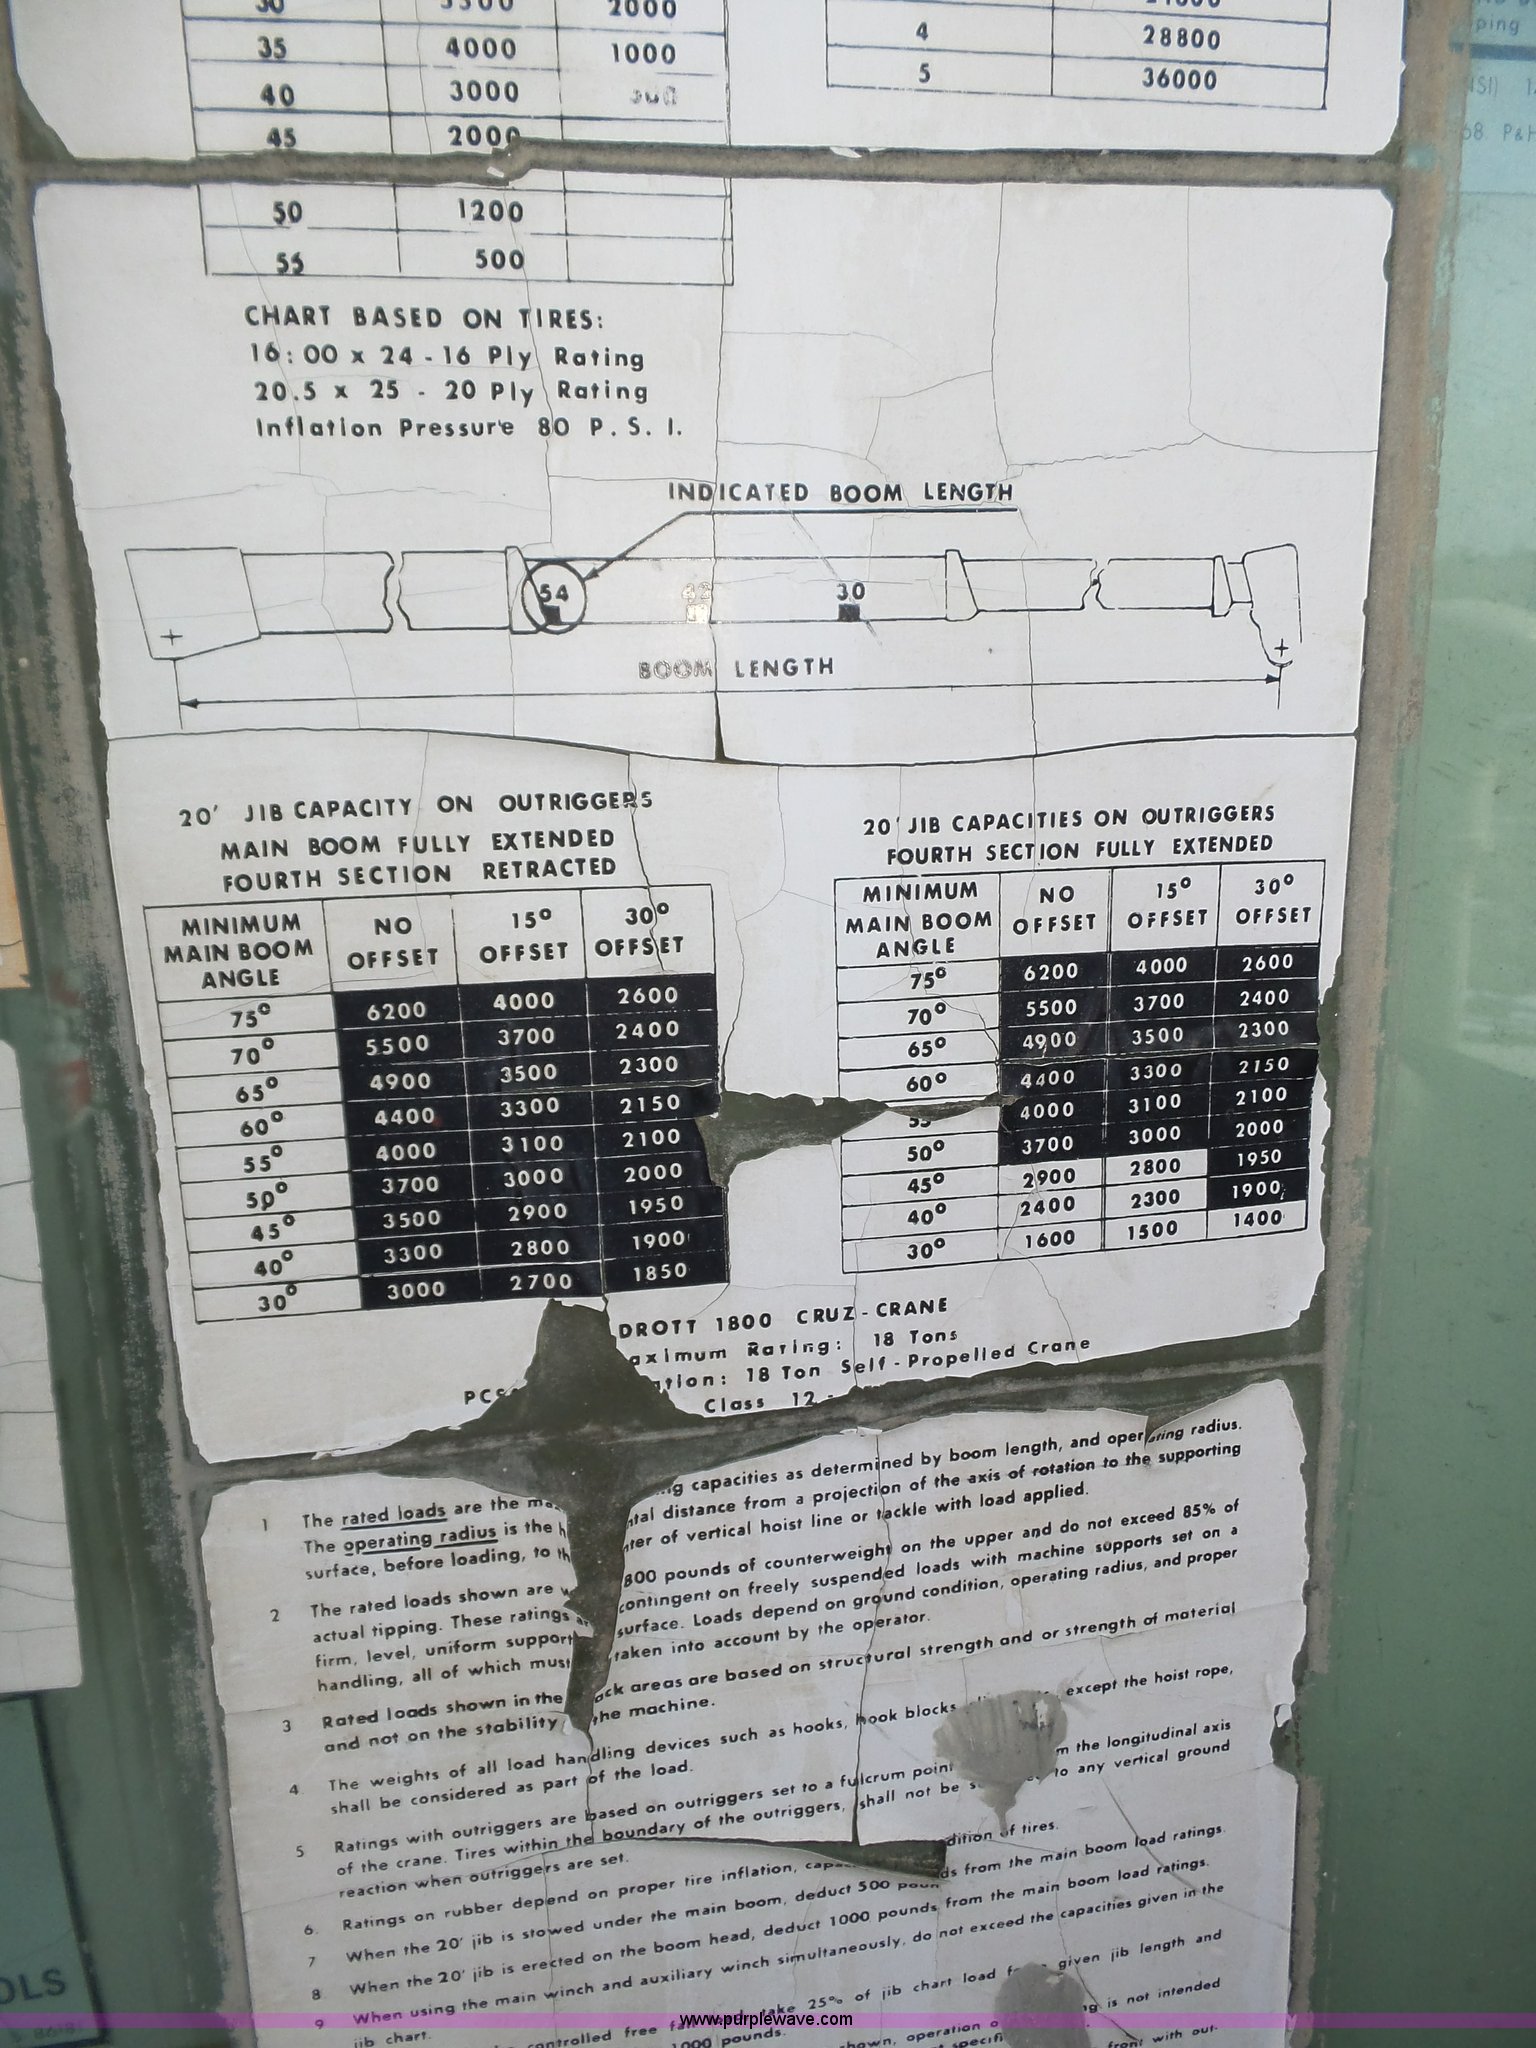 30 3500 2000
35 4000 1000
40 3000
45 2000
50 1200
55 500
4 28800
5 36000
CHART BASED ON TIRES:
16:00 x 24 - 16 Ply Rating
20.5 x 25 - 20 Ply Rating
Inflation Pressure 80 P. S. I.
INDICATED BOOM LENGTH
54 42 30
BOOM LENGTH
20' JIB CAPACITY ON OUTRIGGERS
MAIN BOOM FULLY EXTENDED
FOURTH SECTION RETRACTED
MINIMUM MAIN BOOM ANGLE NO OFFSET 15° OFFSET 30° OFFSET
75° 6200 4000 2600
70° 5500 3700 2400
65° 4900 3500 2300
60° 4400 3300 2150
55° 4000 3100 2100
50° 3700 3000 2000
45° 3500 2900 1950
40° 3300 2800 1900
30° 3000 2700 1850
20' JIB CAPACITIES ON OUTRIGGERS
FOURTH SECTION FULLY EXTENDED
MINIMUM MAIN BOOM ANGLE NO OFFSET 15° OFFSET 30° OFFSET
75° 6200 4000 2600
70° 5500 3700 2400
65° 4900 3500 2300
60° 4400 3300 2150
55° 4000 3100 2100
50° 3700 3000 2000
45° 2900 2800 1950
40° 2400 2300 1900
30° 1600 1500 1400
DROTT 1800 CRUZ-CRANE
aximum Rating: 18 Tons
ation: 18 Ton Self-Propelled Crane
PCS Class 12 -
1 The rated loads are the ma ng capacities as determined by boom length, and operating radius.
The operating radius is the h ntal distance from a projection of the axis of rotation to the supporting
surface, before loading, to th nter of vertical hoist line or tackle with load applied.
2 The rated loads shown are w 800 pounds of counterweight on the upper and do not exceed 85% of
actual tipping. These ratings contingent on freely suspended loads with machine supports set on a
firm, level, uniform support surface. Loads depend on ground condition, operating radius, and proper
handling, all of which must taken into account by the operator.
3 Rated loads shown in the ack areas are based on structural strength and or strength of material
and not on the stability the machine.
4 The weights of all load handling devices such as hooks, hook blocks except the hoist rope,
shall be considered as part of the load.
5 Ratings with outriggers are based on outriggers set to a fulcrum point m the longitudinal axis
of the crane. Tires within the boundary of the outriggers, shall not be to any vertical ground
reaction when outriggers are set.
6. Ratings on rubber depend on proper tire inflation, capa dition of tires.
7 When the 20' jib is stowed under the main boom, deduct 500 pounds from the main boom load ratings.
8 When the 20' jib is erected on the boom head, deduct 1000 pounds from the main boom load ratings.
9 When using the main winch and auxiliary winch simultaneously, do not exceed the capacities given in the
jib chart.
controlled free fall take 25% of jib chart load given jib length and
1000 pounds.
shown, operation is not intended
front with out-
OLS
www.purplewave.com